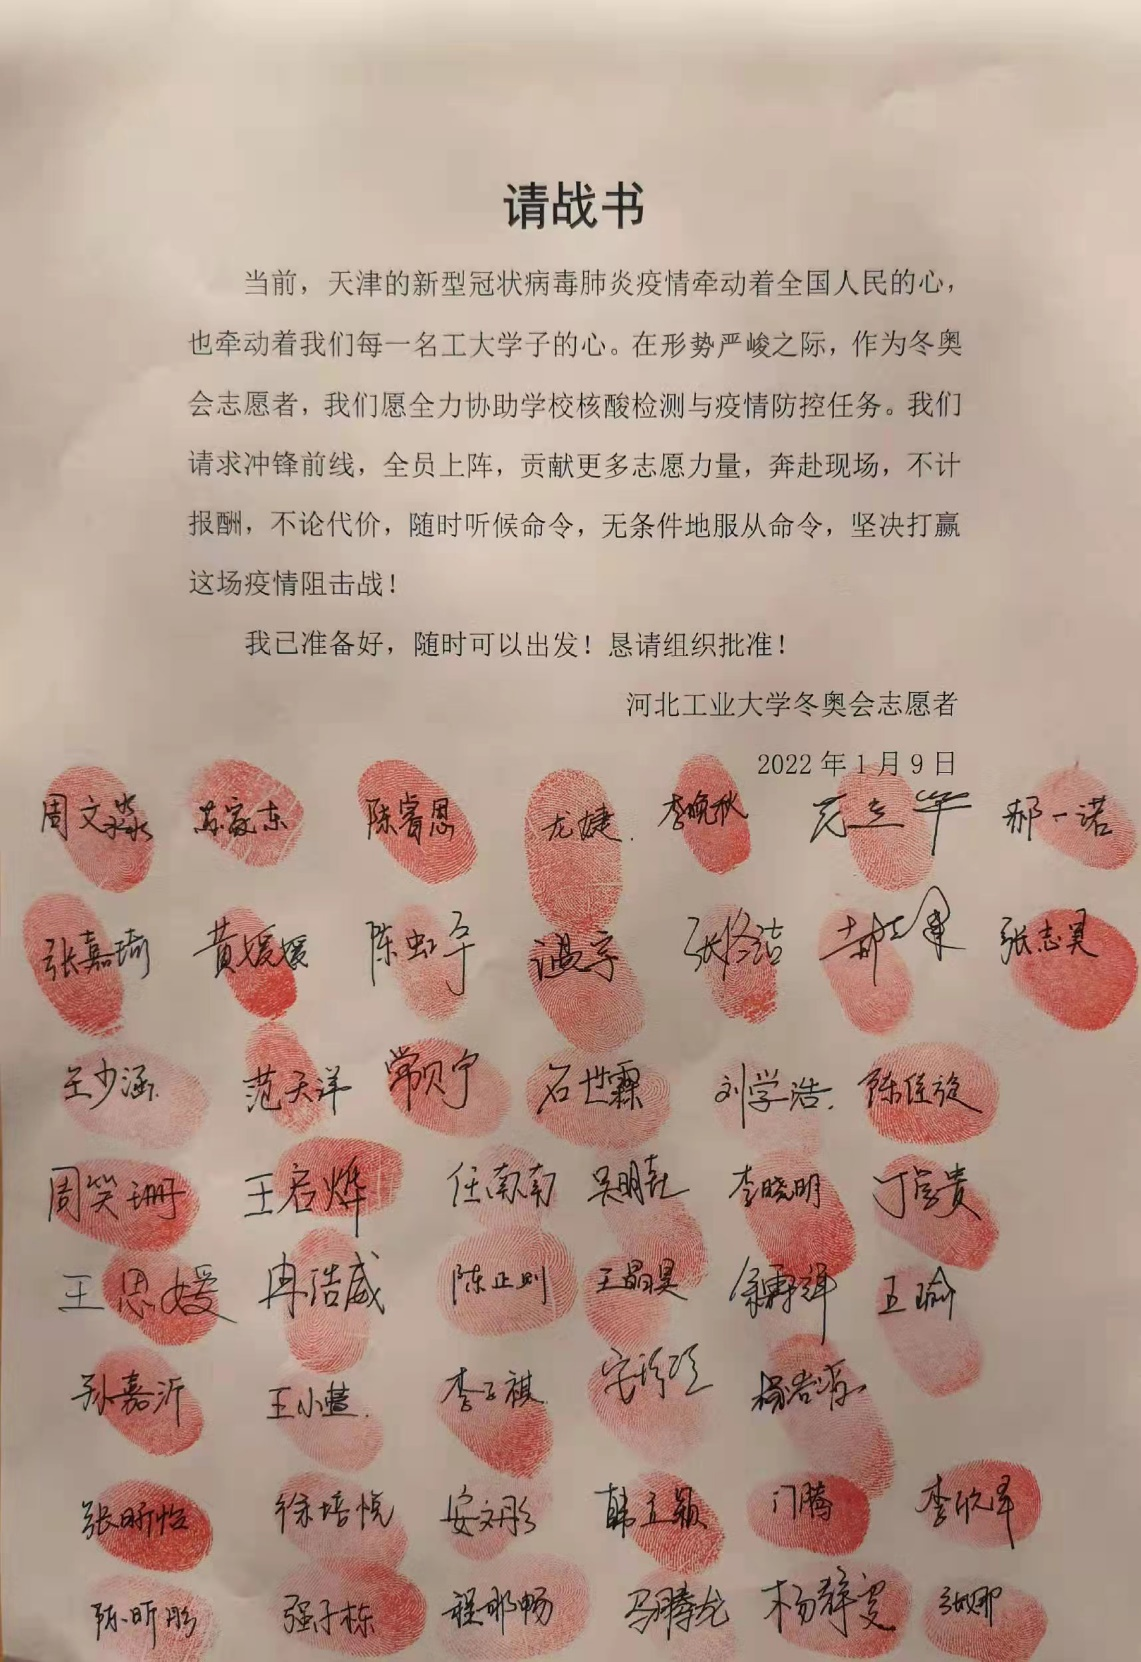 请战书
当前，天津的新型冠状病毒肺炎疫情牵动着全国人民的心，
也牵动着我们每一名工大学子的心。在形势严峻之际，作为冬奥
会志愿者，我们愿全力协助学校核酸检测与疫情防控任务。我们
请求冲锋前线，全员上阵，贡献更多志愿力量，奔赴现场，不计
报酬，不论代价，随时听候命令，无条件地服从命令，坚决打赢
这场疫情阻击战！
我已准备好，随时可以出发！恳请组织批准！
河北工业大学冬奥会志愿者
2022 年 1 月 9 日
周文淼 苏家东 陈睿恩 龙婕 李晚秋 郝一诺
张嘉琦 黄媛媛 温宇
王少涵 范天洋 常贝宁 石世霖 刘学浩 陈佳旋
周笑珊 王启烨 任南南 李晓明 丁学贵
王思媛 冉浩威 陈正则 王晶昊 王瑜
孙嘉沂 王小慧 李子祺
张昕怡 徐培悦 安文彤 韩立颖 门腾 李欣泽
陈昕彤 强子栋 马腾龙 杨静雯